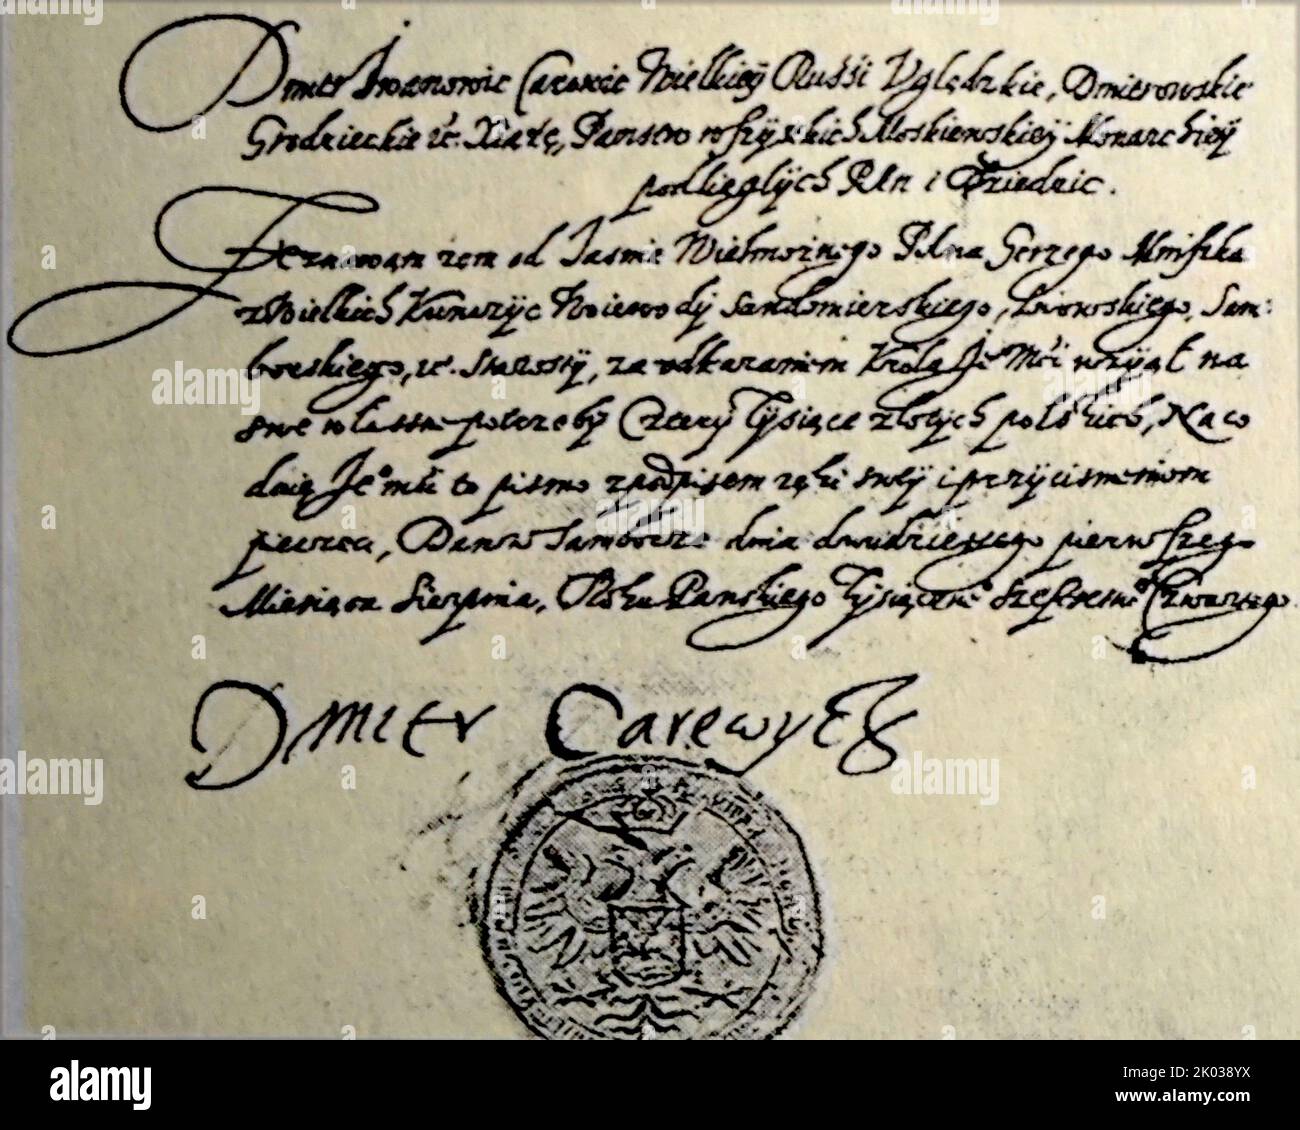 Dmitr Iwanowic Carowic Wielkiey Russi Uględzkie, Dmitrowskie
Grodzieckie etc. Xiąże, Państw wszystkich Moskiewskiey Monarchiey
podlieglych Pan i Dziedzic.
Zeznawam żem od Jasnie Wielmożnego Pana Gerzego Mniszka
z Wielkich Kunczyc Woiewody Sandomierskiego, Lwowskiego, Sam-
borskiego, etc. Starosty, za odkazaniem Krola Je° Mći wziął na
swe własne potrzeby Cztery Tysiące złotych polskich, Na co
daię Je° Mći to pismo z podpisem ręki swey i przyciśnieniem
pieczęci, Dan w Samborze dnia dwudziestego pierwszego
Miesiąca Sierpnia, Roku Pańskiego Tysiączn° Szesćsetn° Czwartego.
Dmitr Carewycz
alamy
alamy
alamy
alamy
Image ID: 2K038YX
www.alamy.com